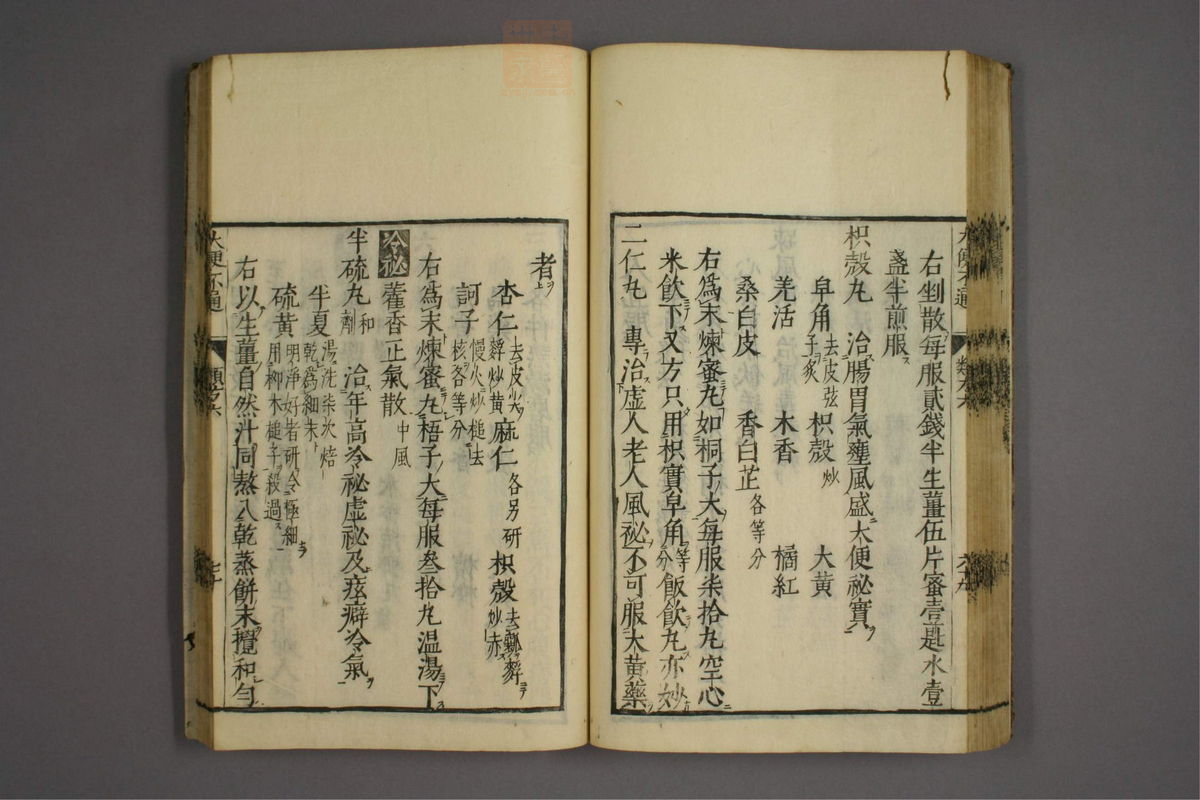 右剉散每服貳錢半生薑伍片蜜壹匙水壹
盞半煎服
枳殼丸　治腸胃氣壅風盛大便祕實
皁角去皮弦子炙　枳殼炒　大黃
羌活　木香　橘紅
桑白皮　香白芷各等分
右爲末煉蜜丸如桐子大每服柒拾丸空心
米飲下又方只用枳實皁角等分飯飲丸亦妙
二仁丸　專治虛人老人風祕不可服大黃藥
者
杏仁去皮尖麩炒黃　麻仁各另研　枳殼去瓤麩炒赤
訶子慢火炒槌去核各等分
右爲末煉蜜丸梧子大每服叁拾丸温湯下
冷祕　藿香正氣散中風
半硫丸和劑　治年高冷祕虛祕及痃癖冷氣
半夏湯洗柒次焙乾爲細末
硫黃明淨好者研令極細用柳木槌子殺過
右以生薑自然汁同熬入乾蒸餅末攪和勻
大便不通　類方六　七十